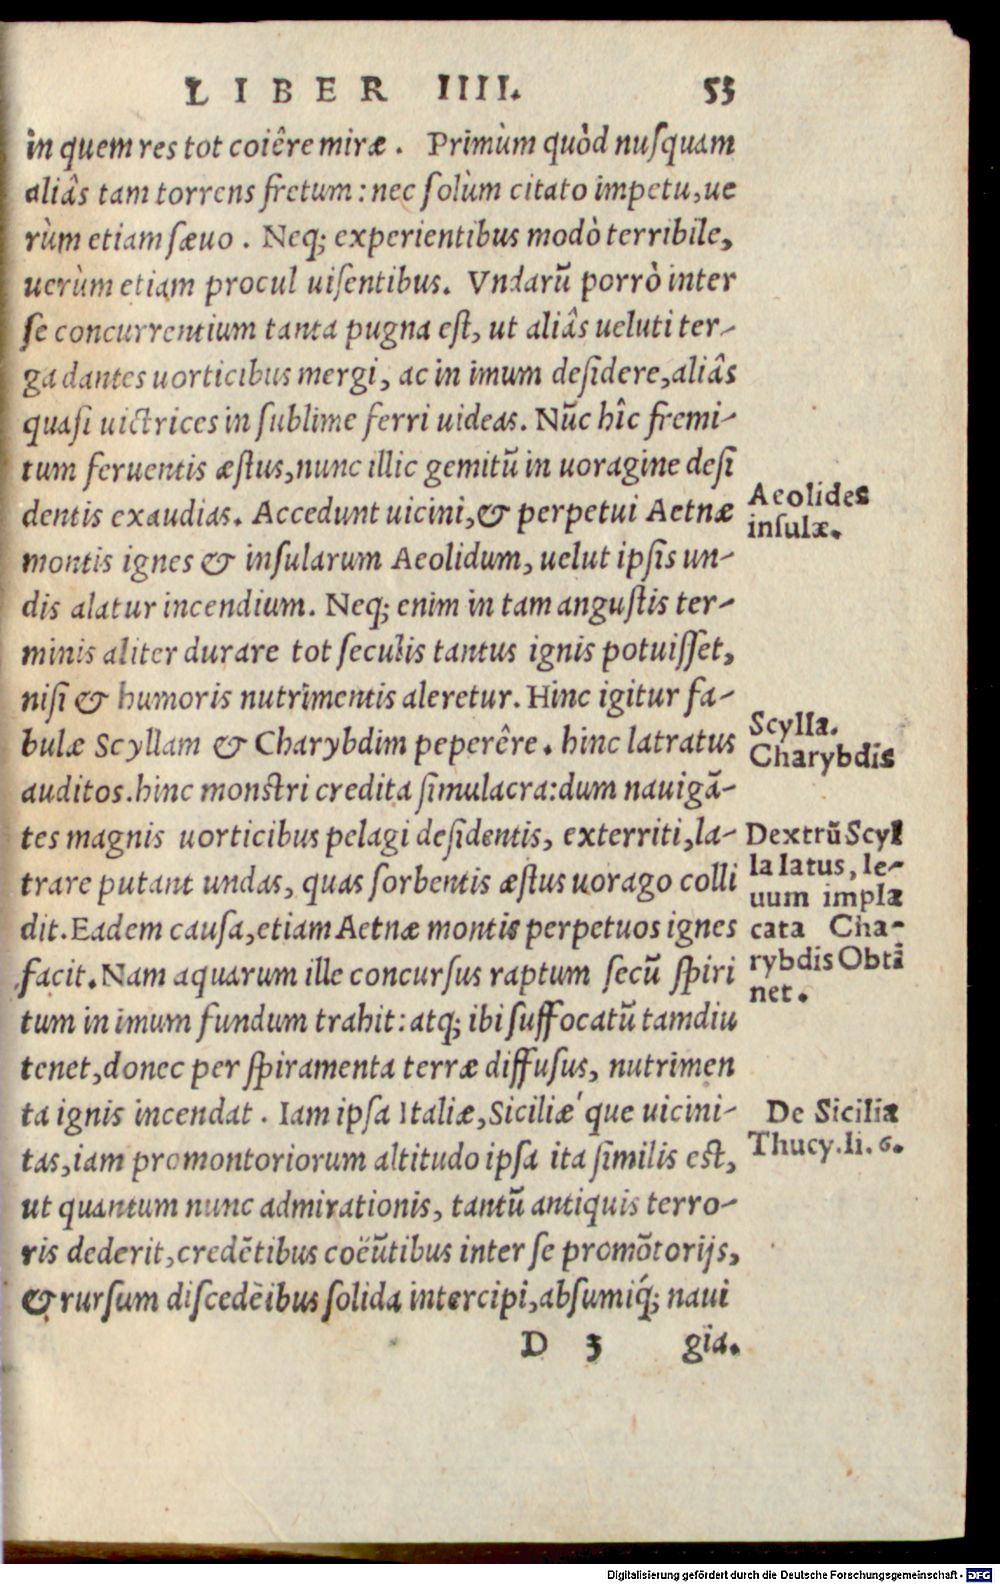 LIBER IIII. 53
in quem res tot coiêre miræ. Primùm quòd nuſquam
aliâs tam torrens fretum: nec ſolùm citato impetu, ue
rùm etiam ſæuo. Neq; experientibus modò terribile,
uerùm etiam procul uiſentibus. Vndarũ porrò inter
ſe concurrentium tanta pugna eſt, ut aliâs ueluti ter-
ga dantes uorticibus mergi, ac in imum deſidere, aliâs
quaſi uictrices in ſublime ferri uideas. Nũc hîc fremi-
tum feruentis æſtus, nunc illic gemitũ in uoragine deſi
dentis exaudias. Accedunt uicini, & perpetui Aetnæ
Aeolides
inſulæ.
montis ignes & inſularum Aeolidum, uelut ipſis un-
dis alatur incendium. Neq; enim in tam anguſtis ter-
minis aliter durare tot ſeculis tantus ignis potuiſſet,
niſi & humoris nutrimentis aleretur. Hinc igitur fa-
bulæ Scyllam & Charybdim peperêre. hinc latratus
Scylla.
Charybdis
auditos. hinc monſtri credita ſimulacra: dum nauigã-
tes magnis uorticibus pelagi deſidentis, exterriti, la-
trare putant undas, quas ſorbentis æſtus uorago colli
dit. Eadem cauſa, etiam Aetnæ montis perpetuos ignes
facit. Nam aquarum ille concurſus raptum ſecũ ſpiri
Dextrũ Scyl
la latus, le-
uum impla
cata Cha-
rybdis Obti
net.
tum in imum fundum trahit: atq; ibi ſuffocatũ tamdiu
tenet, donec per ſpiramenta terræ diffuſus, nutrimen
ta ignis incendat. Iam ipſa Italiæ, Siciliæ´que uicini-
De Sicilia
Thucy. li. 6.
tas, iam promontoriorum altitudo ipſa ita ſimilis eſt,
ut quantum nunc admirationis, tantũ antiquis terro-
ris dederit, credẽtibus coëũtibus inter ſe promõtorijs,
& rurſum diſcedẽibus ſolida intercipi, abſumiq́; naui
D 3 gia.
Digitalisierung gefördert durch die Deutsche Forschungsgemeinschaft - DFG